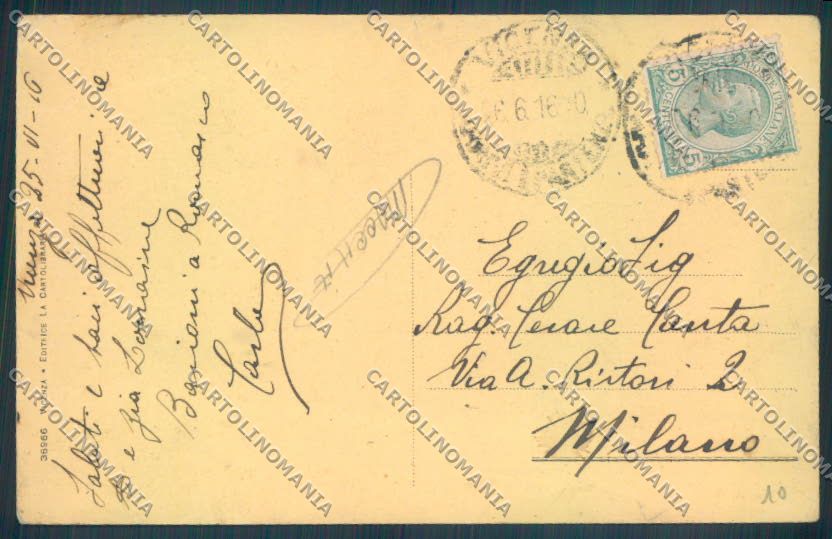 Vicenza 25-VI-16
Saluti e baci affettuosi a te
e zia Leonaine
Bacioni a Romano
Carlo
36966 VICENZA • EDITRICE LA CARTOLIBRARIA
VICENZA
6.6.16
5 CENTESIMI 5
POSTE ITALIANE
Egregio Sig
Rag. Cesare Canta
Via A. Ristori 2
Milano
10
CARTOLINOMANIA